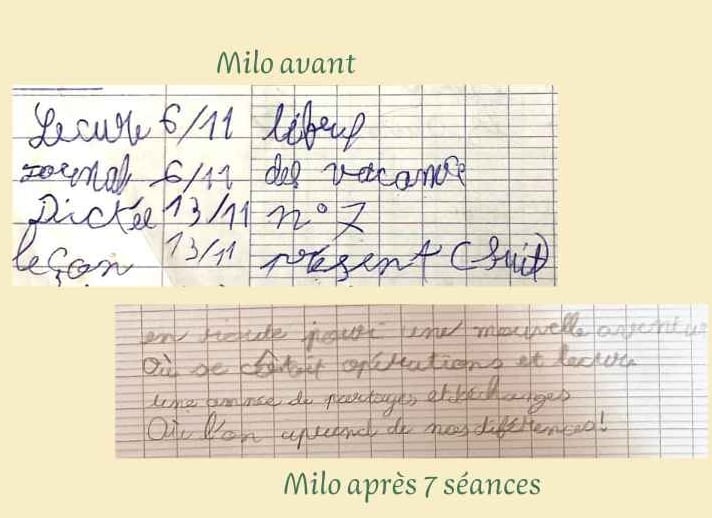 Milo avant
Lecure 6/11
Journal 6/11 des vacance
Dictée 13/11 n° 7
leçon 13/11 présent (suit)
en route pour une nouvelle
Où se opérations et lecture
une année de partages et d'échanges
Où l'on apprend de nos différences!
Milo après 7 séances